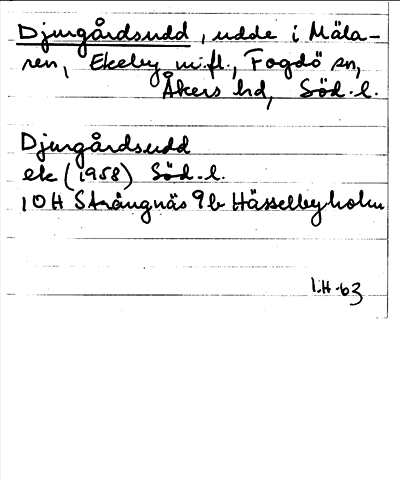 Djurgårdsudd, udde i Mäla-
ren, Ekeby m.fl., Fogdö sn,
Åkers hd, Söd.l.
Djurgårdsudd
ek (1958) Söd.l.
10H Strängnäs 9b Hässelbyholm
I.H-63